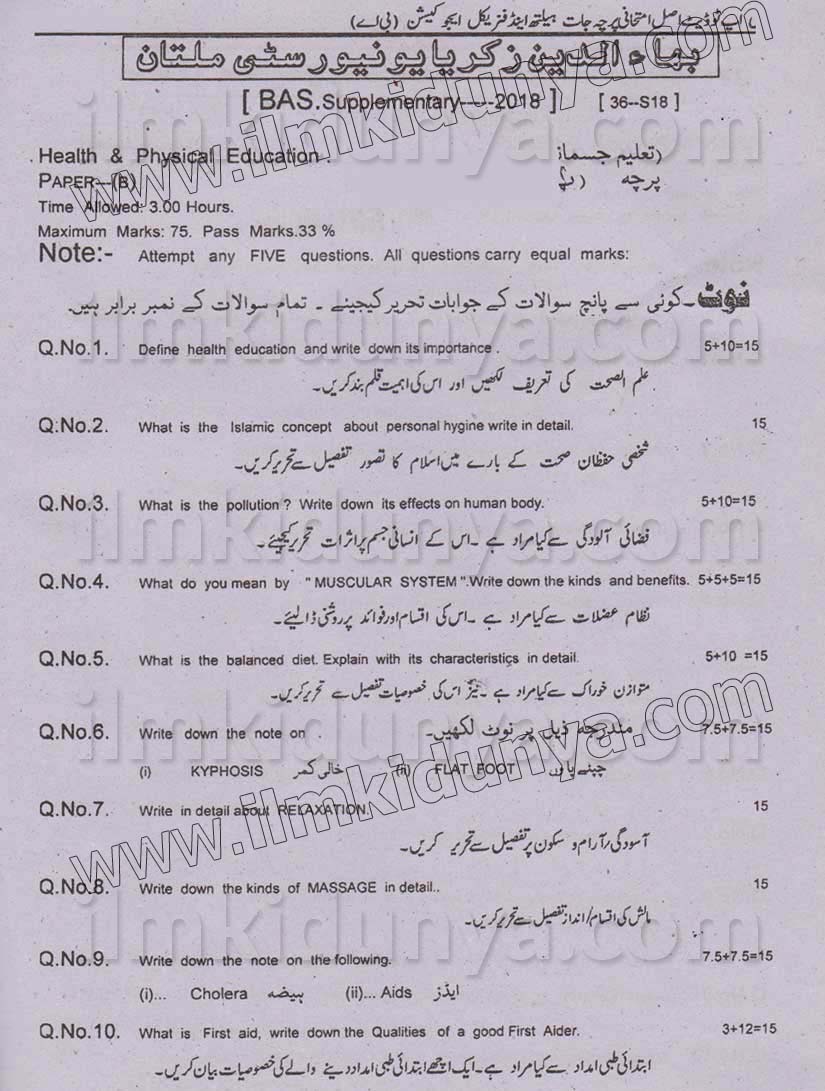 اپ ٹو ڈیٹ اصل امتحانی پرچہ جات ہیلتھ اینڈ فزیکل ایجوکیشن (بی اے)
بہاءالدین زکریا یونیورسٹی ملتان
[ BAS.Supplementary-----2018 ] [ 36--S18 ]
Health & Physical Education . (تعلیم جسمانی
PAPER---(B) پرچہ (بی
Time Allowed: 3.00 Hours.
Maximum Marks: 75. Pass Marks.33 %
Note:- Attempt any FIVE questions. All questions carry equal marks:
نوٹ۔کوئی سے پانچ سوالات کے جوابات تحریر کیجیئے ۔ تمام سوالات کے نمبر برابر ہیں.
Q.No.1. Define health education and write down its importance . 5+10=15
علم الصحت کی تعریف لکھیں اور اس کی اہمیت قلم بند کریں۔
Q:No.2. What is the Islamic concept about personal hygine write in detail. 15
شخصی حفظان صحت کے بارے میں اسلام کا تصور تفصیل سے تحریر کریں۔
Q.No.3. What is the pollution ? Write down its effects on human body. 5+10=15
فضائی آلودگی سے کیا مراد ہے ۔اس کے انسانی جسم پر اثرات تحریر کیجیئے۔
Q.No.4. What do you mean by " MUSCULAR SYSTEM ".Write down the kinds and benefits. 5+5+5=15
نظام عضلات سے کیا مراد ہے ۔اس کی اقسام اور فوائد پر روشنی ڈالیئے۔
Q.No.5. What is the balanced diet. Explain with its characteristics in detail. 5+10 =15
متوازن خوراک سے کیا مراد ہے ۔نیز اس کی خصوصیات تفصیل سے تحریر کریں۔
Q.No.6. Write down the note on . مندرجہ ذیل پر نوٹ لکھیں۔ 7.5+7.5=15
(i) KYPHOSIS خالی کمر (ii) FLAT FOOT چپٹے پاؤں
Q.No.7. Write in detail about RELAXATION. 15
آسودگی/آرام و سکون پر تفصیل سے تحریر کریں۔
Q.No.8. Write down the kinds of MASSAGE in detail.. 15
مالش کی اقسام/انداز تفصیل سے تحریر کریں۔
Q.No.9. Write down the note on the following. 7.5+7.5=15
(i)... Cholera ہیضہ (ii)... Aids ایڈز
Q.No.10. What is First aid, write down the Qualities of a good First Aider. 3+12=15
ابتدائی طبی امداد سے کیا مراد ہے۔ایک اچھے ابتدائی طبی امداد دینے والے کی خصوصیات بیان کریں۔
www.ilmkidunya.com
www.ilmkidunya.com
ilmkidunya.com
ilmkidunya.com
ilmkidunya.com
ilmkidunya.com
ilmkidunya.com